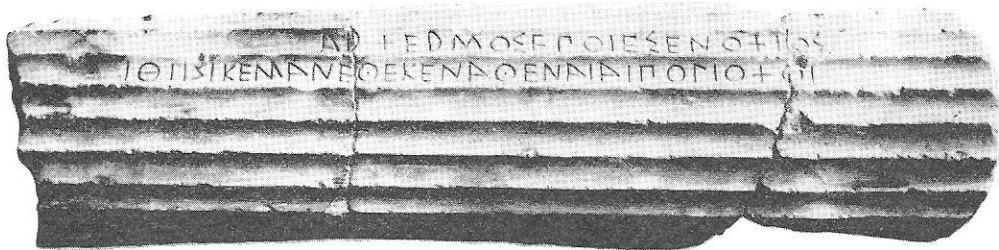 ΑΡΧΕΡΜΟΣΕΠΟΙΕΣΕΝΟΧΙΟΣ
ΙΦΙΔΙΚΕΜΑΝΕΘΕΚΕΝΑΘΕΝΑΙΑΙΠΟΛΙΟΧΟΙ